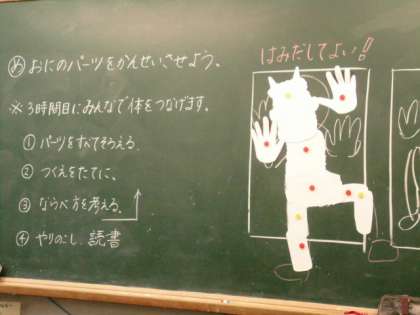 め おにのパーツをかんせいさせよう。
※ 3時間目にみんなで体をつなげます。
① パーツをすべてそろえる。
② つくえをたてに、
③ ならべ方を考える。
④ やりのこし、読書
はみだしてよい!!